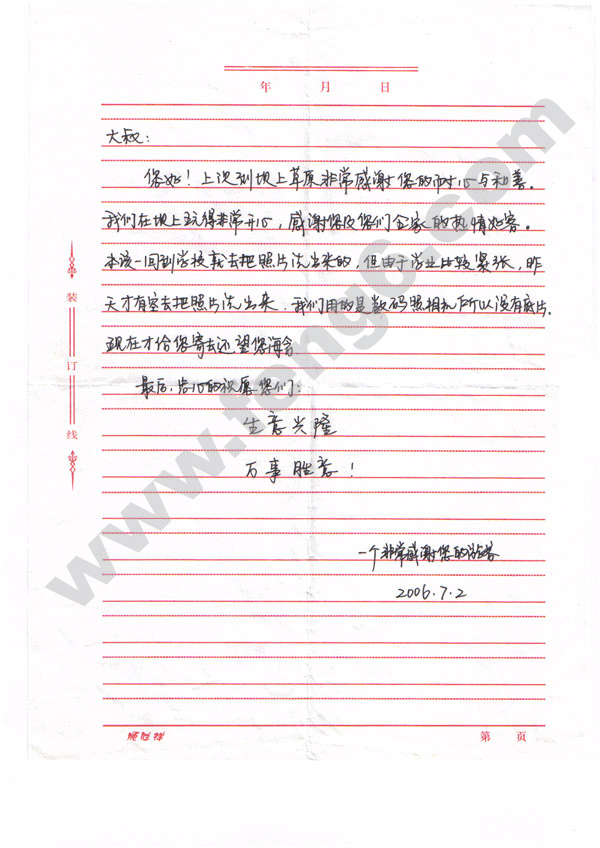 年 月 日
大叔：
您好！上次到坝上草原非常感谢您的耐心与和善。
我们在坝上玩得非常开心，感谢您及您们全家的热情好客。
本该一回到学校就去把照片洗出来的，但由于学业比较紧张，昨
天才有空去把照片洗出来，我们用的是数码照相机所以没有底片.
现在才给您寄去还望您海含
最后，忠心的祝愿您们：
生意兴隆
万事胜意！
一个非常感谢您的游客
2006.7.2
装订线
第 页
www.feng6.com